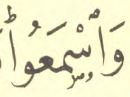 وَاسْمَعُوا